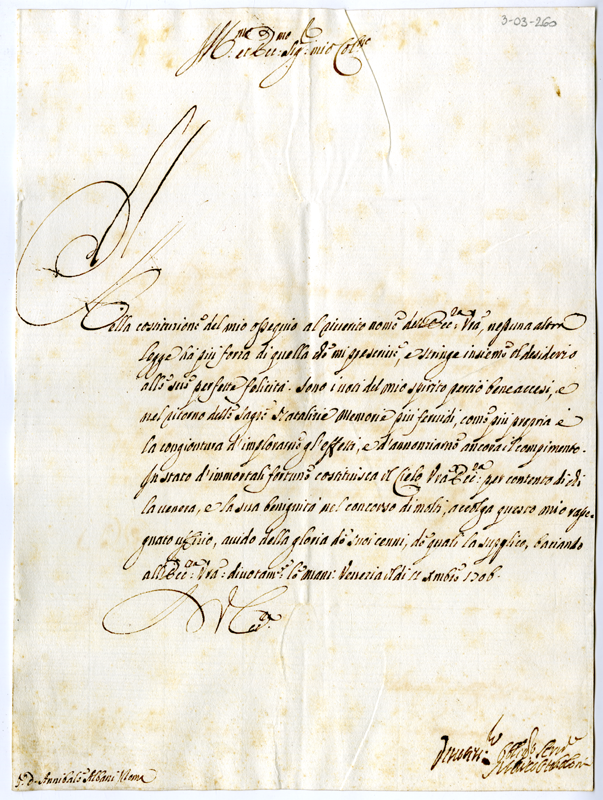 3-03-260
Ill.mo et Ecc.mo Sig.r mio Col.mo
Nella costituzione del mio ossequio al riverito nome dell'Ecc.za Vra, nessuna altra
legge hà più forza di quella che mi prescrive, e stringe insieme il desiderio
alle sue perfette felicità. Sono i voti del mio spirito perciò bene accesi, e
nel ritorno delle Sagre Natalizie Memorie più fervidi, come più propria è
la congiontura d'implorarne gl'effetti, e d'annonziarne ancora il compimento.
In stato d'immortali fortune costituisca il Cielo Vra Ecc.za per contento di chi
la venera, e la sua benignità nel concorso di molti, accolga questo mio rasse-
gnato uffizio, avido della gloria de suoi cenni, de quali la supplico, baciando
all'Ecc.za Vra: divotam.te le mani. Venezia li di 11 Xmbre 1706.
D V Ecc.za
S.r D. Annibale Albani Roma